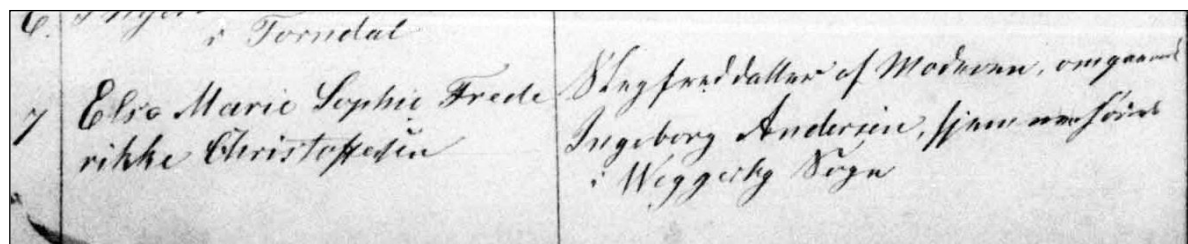 6.
i Torndal
7 Else Marie Sophie Frede
rikke Christoffesen
Slegfreddatter af Moderen, omgaaend
Ingeborg Andersen, hjemmehørend
i Weggerby Sogn